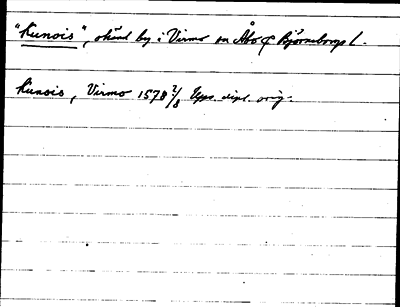 "Kunois", okänd by i Virmo sn Åbo o Björneborgs l.
Kunois, Virmo 1578 2/8 Upps. dipl. orig.